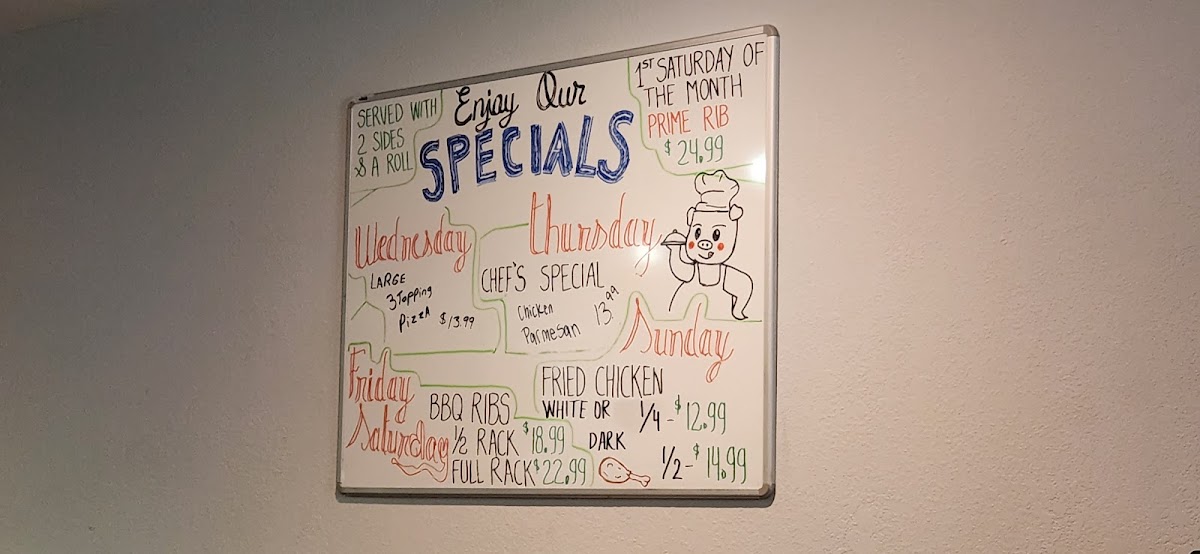 SERVED WITH
2 SIDES
& A ROLL
Enjoy Our
SPECIALS
1ST SATURDAY OF
THE MONTH
PRIME RIB
$24.99
Wednesday
LARGE
3 Topping
PIZZA $13.99
Thursday
CHEF'S SPECIAL
Chicken
Parmesan 13.99
Friday
Saturday
BBQ RIBS
1/2 RACK $18.99
FULL RACK $22.99
Sunday
FRIED CHICKEN
WHITE OR
DARK
1/4 - $12.99
1/2 - $14.99